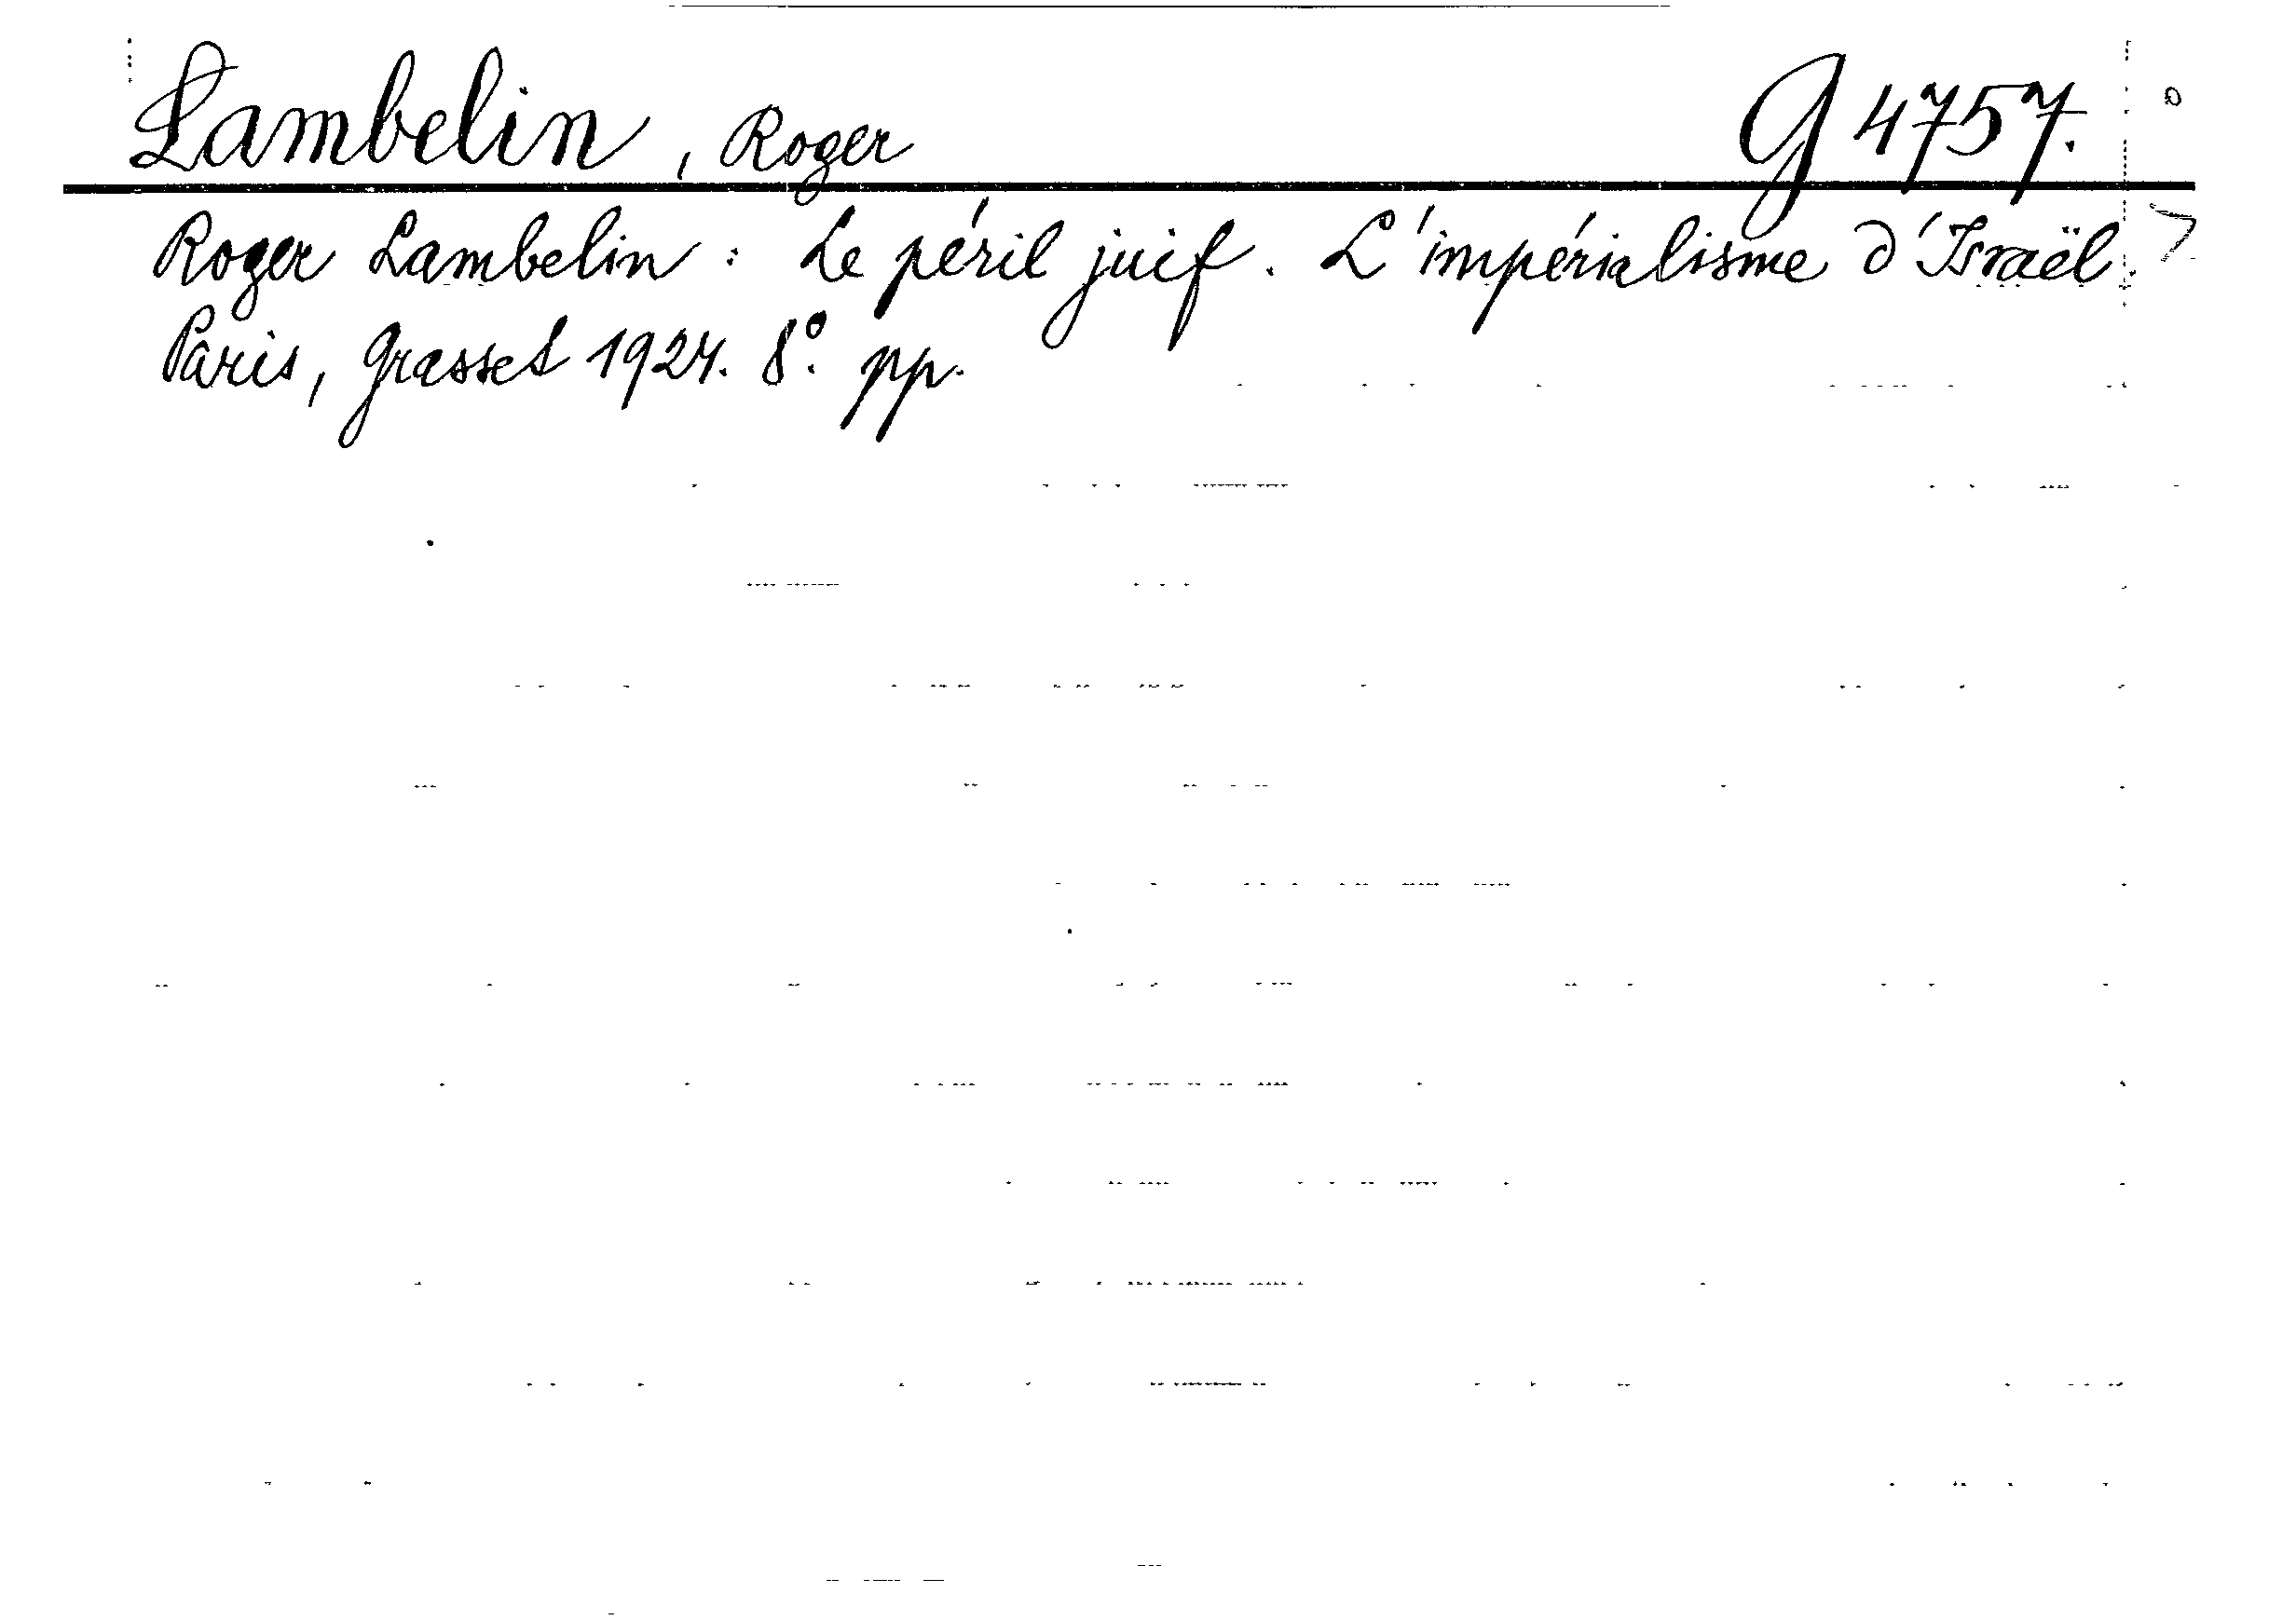 Lambelin, Roger G 4757.
Roger Lambelin: Le péril juif. L'impérialisme d'Israël.
Paris, Grasset 1924. 8°. pp.